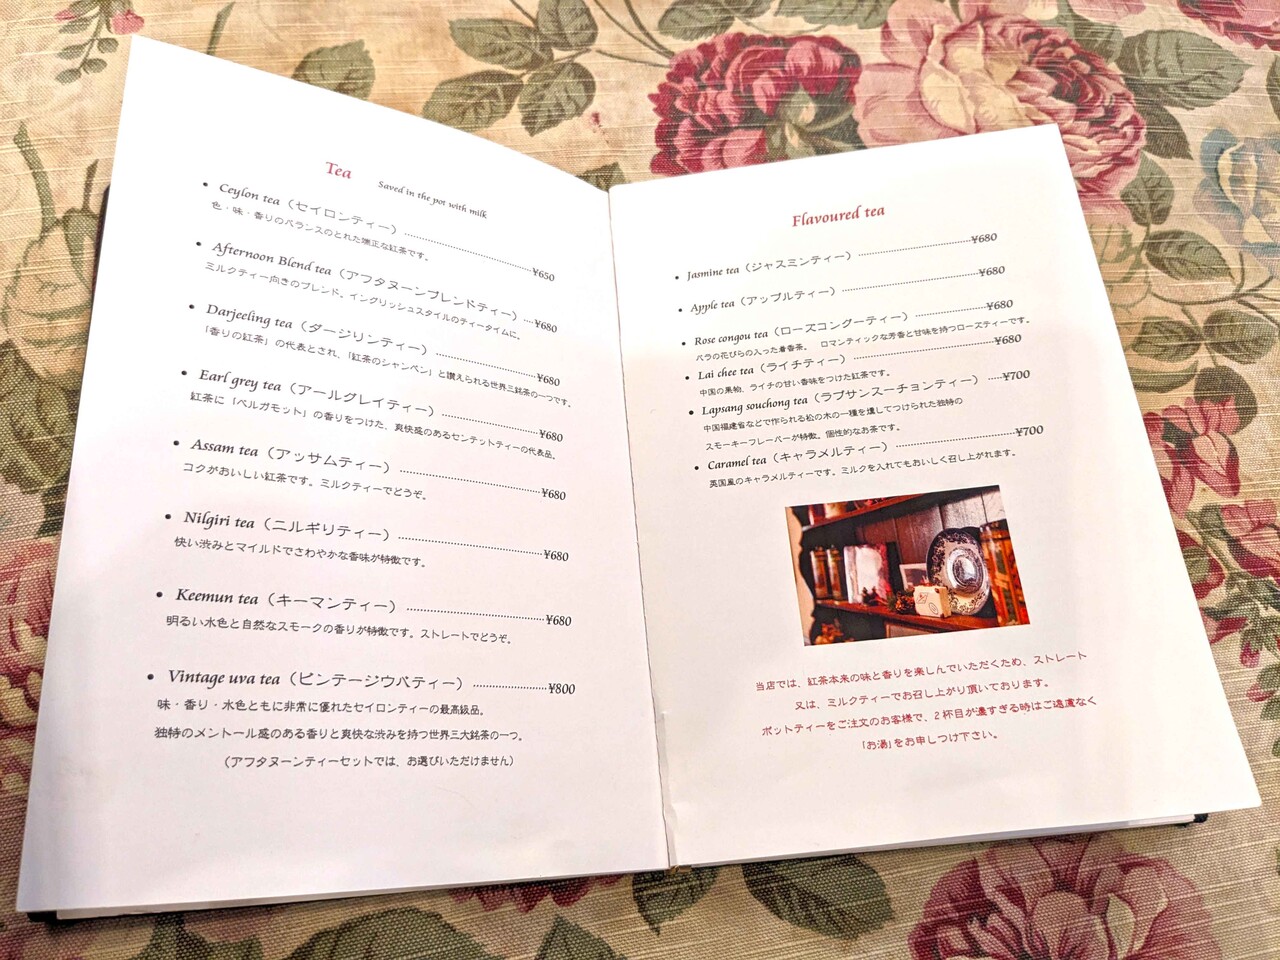 Tea Saved in the pot with milk
• Ceylon tea（セイロンティー）¥650
色・味・香りのバランスのとれた端正な紅茶です。
• Afternoon Blend tea（アフタヌーンブレンドティー）¥680
ミルクティー向きのブレンド。イングリッシュスタイルのティータイムに。
• Darjeeling tea（ダージリンティー）¥680
「香りの紅茶」の代表とされ、「紅茶のシャンペン」と讃えられる世界三銘茶の一つです。
• Earl grey tea（アールグレイティー）¥680
紅茶に「ベルガモット」の香りをつけた、爽快感のあるセンテットティーの代表品。
• Assam tea（アッサムティー）¥680
コクがおいしい紅茶です。ミルクティーでどうぞ。
• Nilgiri tea（ニルギリティー）¥680
快い渋みとマイルドでさわやかな香味が特徴です。
• Keemun tea（キーマンティー）¥680
明るい水色と自然なスモークの香りが特徴です。ストレートでどうぞ。
• Vintage uva tea（ビンテージウバティー）¥800
味・香り・水色ともに非常に優れたセイロンティーの最高級品。
独特のメントール感のある香りと爽快な渋みを持つ世界三大銘茶の一つ。
（アフタヌーンティーセットでは、お選びいただけません）
Flavoured tea
• Jasmine tea（ジャスミンティー）¥680
• Apple tea（アップルティー）¥680
• Rose congou tea（ローズコングーティー）¥680
バラの花びらの入った着香茶。 ロマンティックな芳香と甘味を持つローズティーです。
• Lai chee tea（ライチティー）¥680
中国の果物、ライチの甘い香味をつけた紅茶です。
• Lapsang souchong tea（ラプサンスーチョンティー）¥700
中国福建省などで作られる松の木の一種を燻してつけられた独特の
スモーキーフレーバーが特徴。個性的なお茶です。
• Caramel tea（キャラメルティー）¥700
英国風のキャラメルティーです。ミルクを入れてもおいしく召し上がれます。
当店では、紅茶本来の味と香りを楽しんでいただくため、ストレート
又は、ミルクティーでお召し上がり頂いております。
ポットティーをご注文のお客様で、2杯目が濃すぎる時はご遠慮なく
「お湯」をお申しつけ下さい。